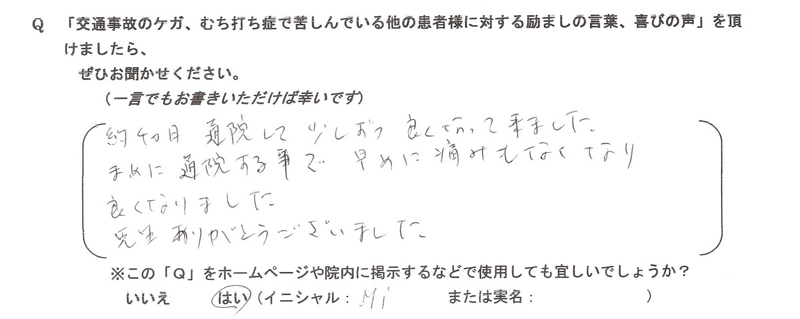 Q 「交通事故のケガ、むち打ち症で苦しんでいる他の患者様に対する励ましの言葉、喜びの声」を頂
けましたら、
ぜひお聞かせください。
（一言でもお書きいただけば幸いです）
約4ヵ月 通院して 少しずつ 良くなって来ました。
まめに 通院する事で 早めに痛みもなくなり
良くなりました
先生ありがとうございました。
※この「Q」をホームページや院内に掲示するなどで使用しても宜しいでしょうか？
いいえ はい（イニシャル： Mi または実名： ）